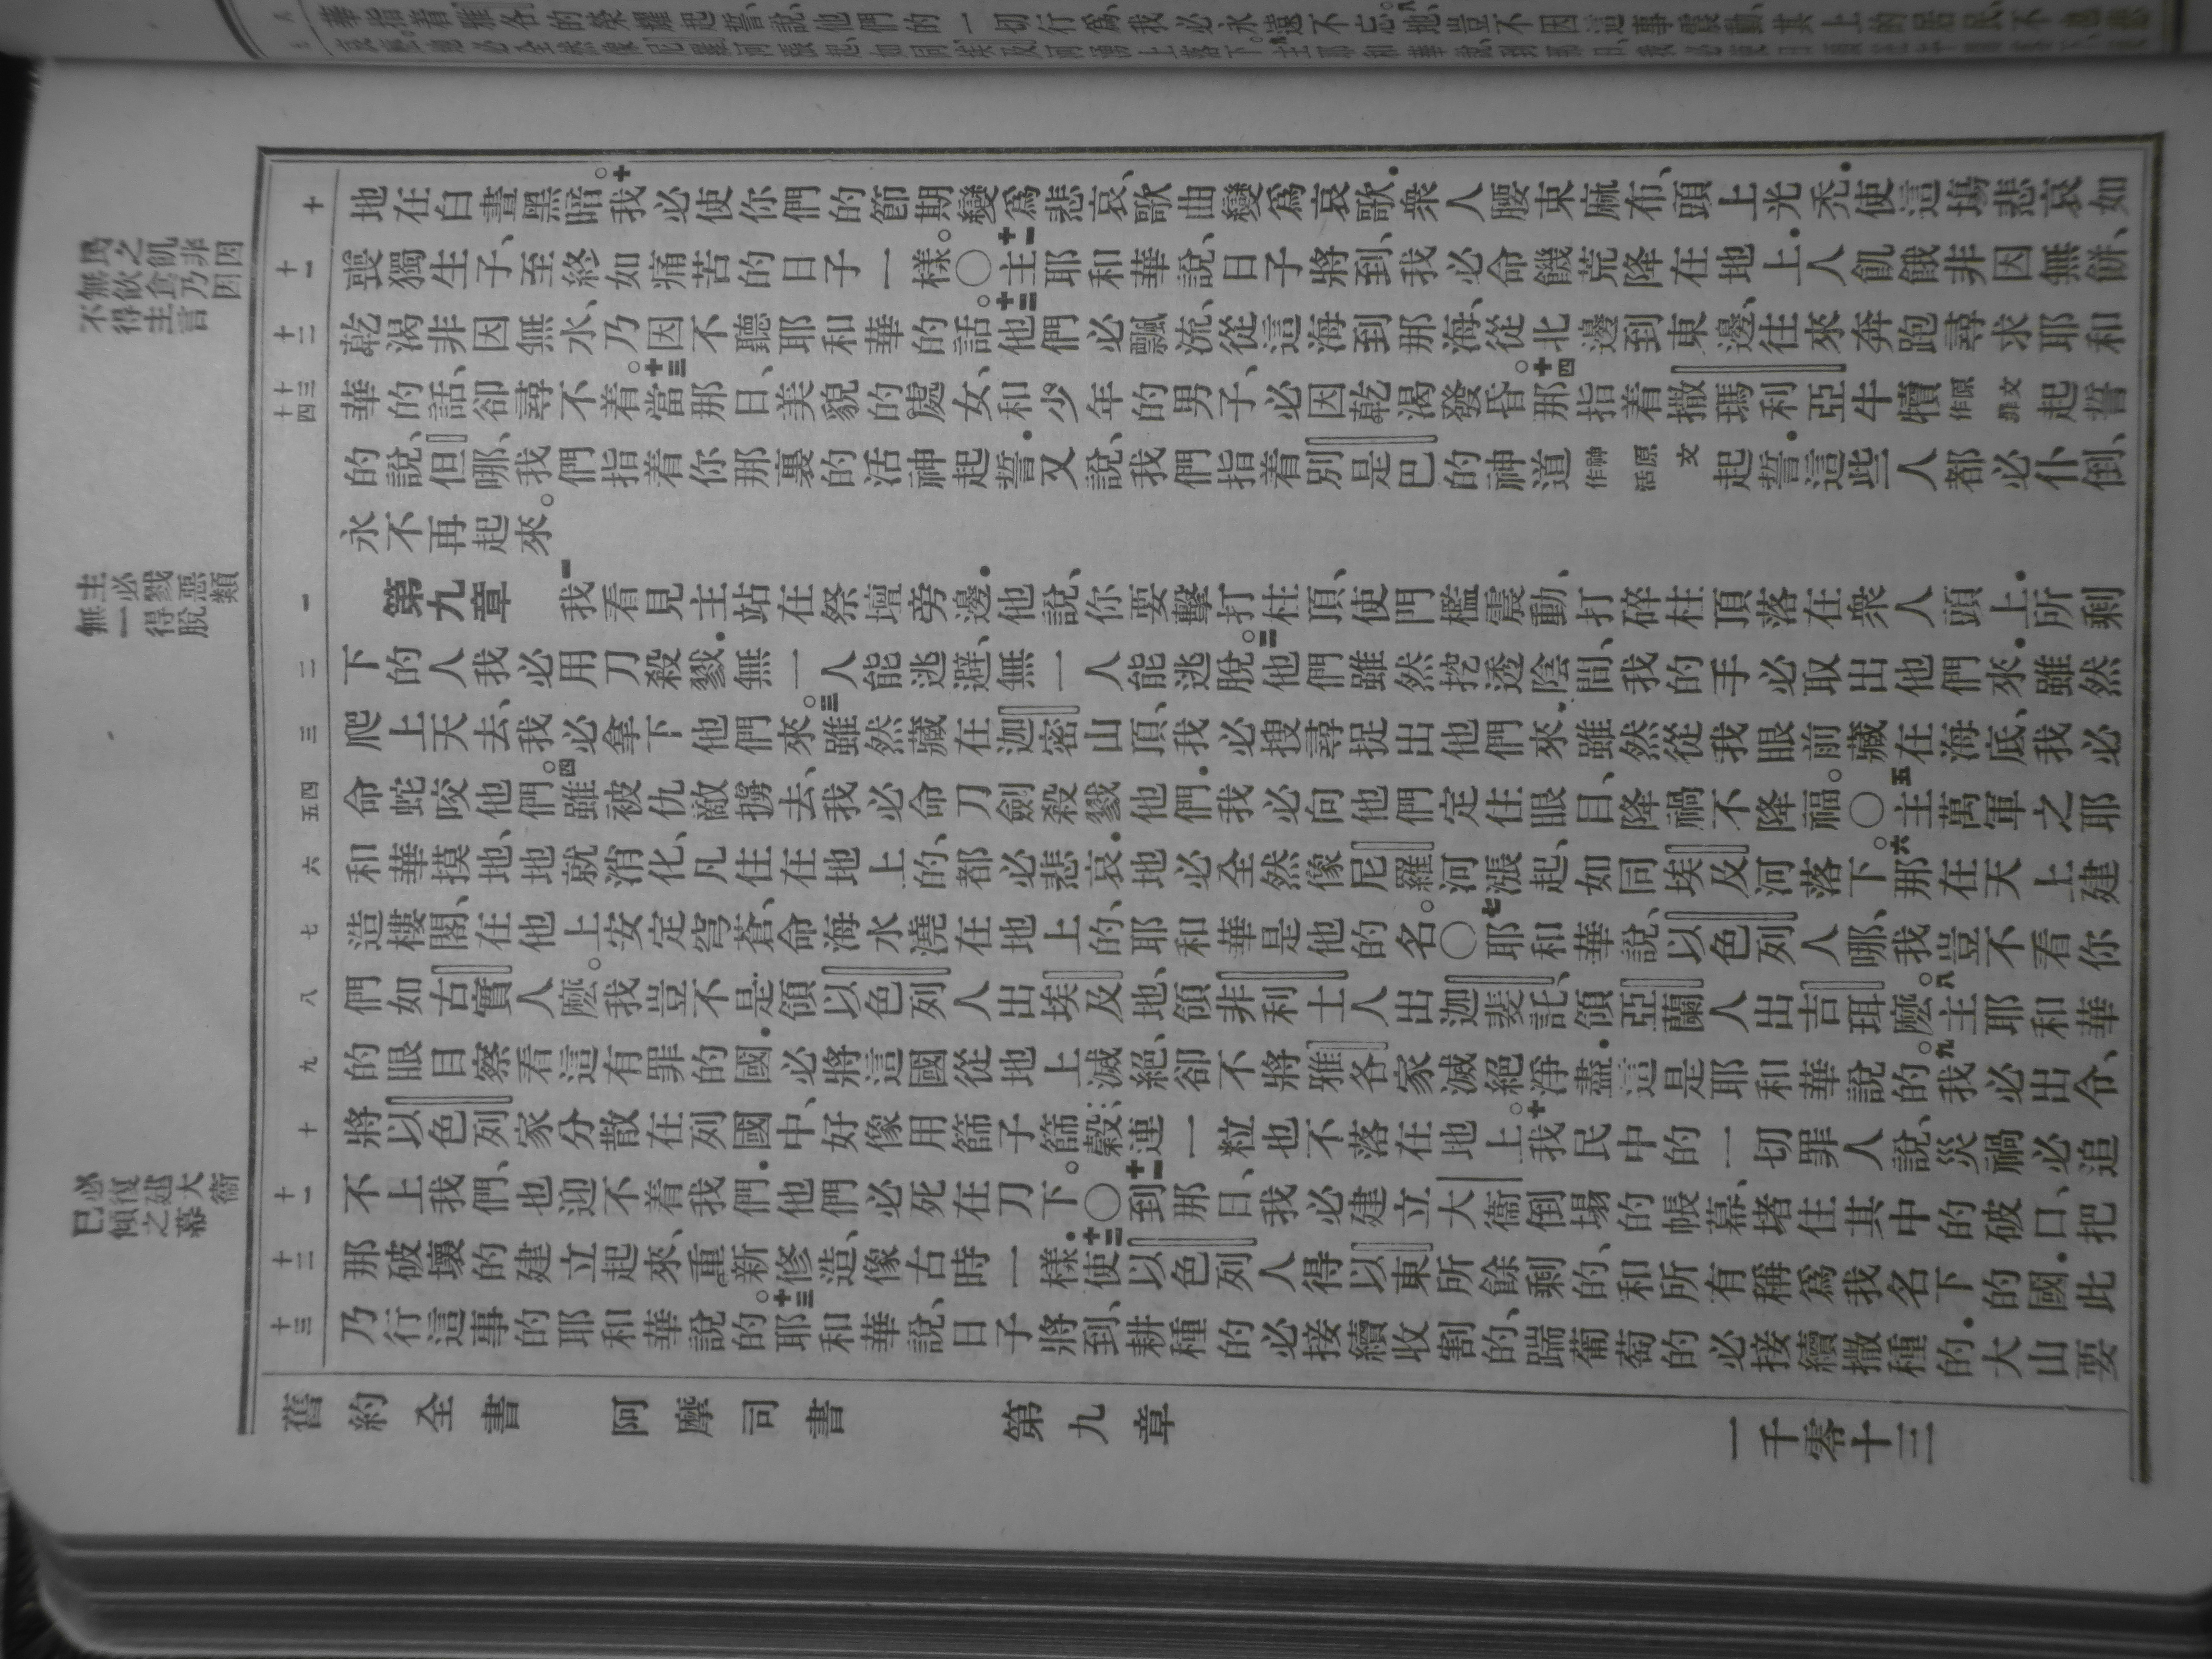 華指着雅各的榮耀起誓說、他們的一切行爲、我必永遠不忘。八地豈不因這事震動、其上的居民不
民之飢非因
無飲食乃因
不得主言
十
地在白晝黑暗。十我必使你們的節期變爲悲哀、歌曲變爲哀歌．衆人腰束麻布、頭上光禿．使這塲悲哀如
十一
喪獨生子、至終如痛苦的日子一樣。〇十一主耶和華說、日子將到、我必命饑荒降在地上．人飢餓非因無餅、
十二
乾渴非因無水、乃因不聽耶和華的話。十二他們必飄流、從這海到那海、從北邊到東邊、往來奔跑尋求耶和
十三 十四
華的話、卻尋不着。十三當那日、美貌的處女、和少年的男子、必因乾渴發昏。十四那指着撒瑪利亞牛犢原文作罪起誓
的說、但哪、我們指着你那裏的活神起誓．又說、我們指着別是巴的神道原文作活神起誓．這些人都必仆倒、
永不再起來。
主必戮惡類
無一得脫
一
第九章 一我看見主站在祭壇旁邊．他說、你要擊打柱頂、使門檻震動、打碎柱頂落在衆人頭上．所剩
二
下的人我必用刀殺戮．無一人能逃避、無一人能逃脫。二他們雖然挖透陰間、我的手必取出他們來．雖然
三
爬上天去、我必拿下他們來。三雖然藏在迦密山頂、我必搜尋捉出他們來．雖然從我眼前藏在海底、我必
四 五
命蛇咬他們。四雖被仇敵擄去、我必命刀劍殺戮他們．我必向他們定住眼目、降禍不降福。〇五主萬軍之耶
六
和華摸地、地就消化、凡住在地上的、都必悲哀．地必全然像尼羅河漲起、如同埃及河落下。六那在天上建
七
造樓閣、在他上安定穹蒼、命海水澆在地上的、耶和華是他的名。〇七耶和華說、以色列人哪、我豈不看你
八
們如古實人麽。我豈不是領以色列人出埃及地、領非利士人出迦斐託、領亞蘭人出吉珥麽。八主耶和華
九
的眼目察看這有罪的國．必將這國從地上滅絕、卻不將雅各家滅絕淨盡．這是耶和華說的。九我必出令、
十
將以色列家分散在列國中、好像用篩子篩穀、連一粒也不落在地上。十我民中的一切罪人說、災禍必追
必復建大衛
已傾之幕
十一
不上我們、也迎不着我們．他們必死在刀下。〇十一到那日、我必建立大衛倒塌的帳幕、堵住其中的破口、把
十二
那破壞的建立起來、重新修造、像古時一樣．十二使以色列人得以東所餘剩的、和所有稱爲我名下的國．此
十三
乃行這事的耶和華說的。十三耶和華說、日子將到、耕種的必接續收割的、踹葡萄的必接續撒種的．大山要
舊約全書 阿摩司書 第九章 一千零十三